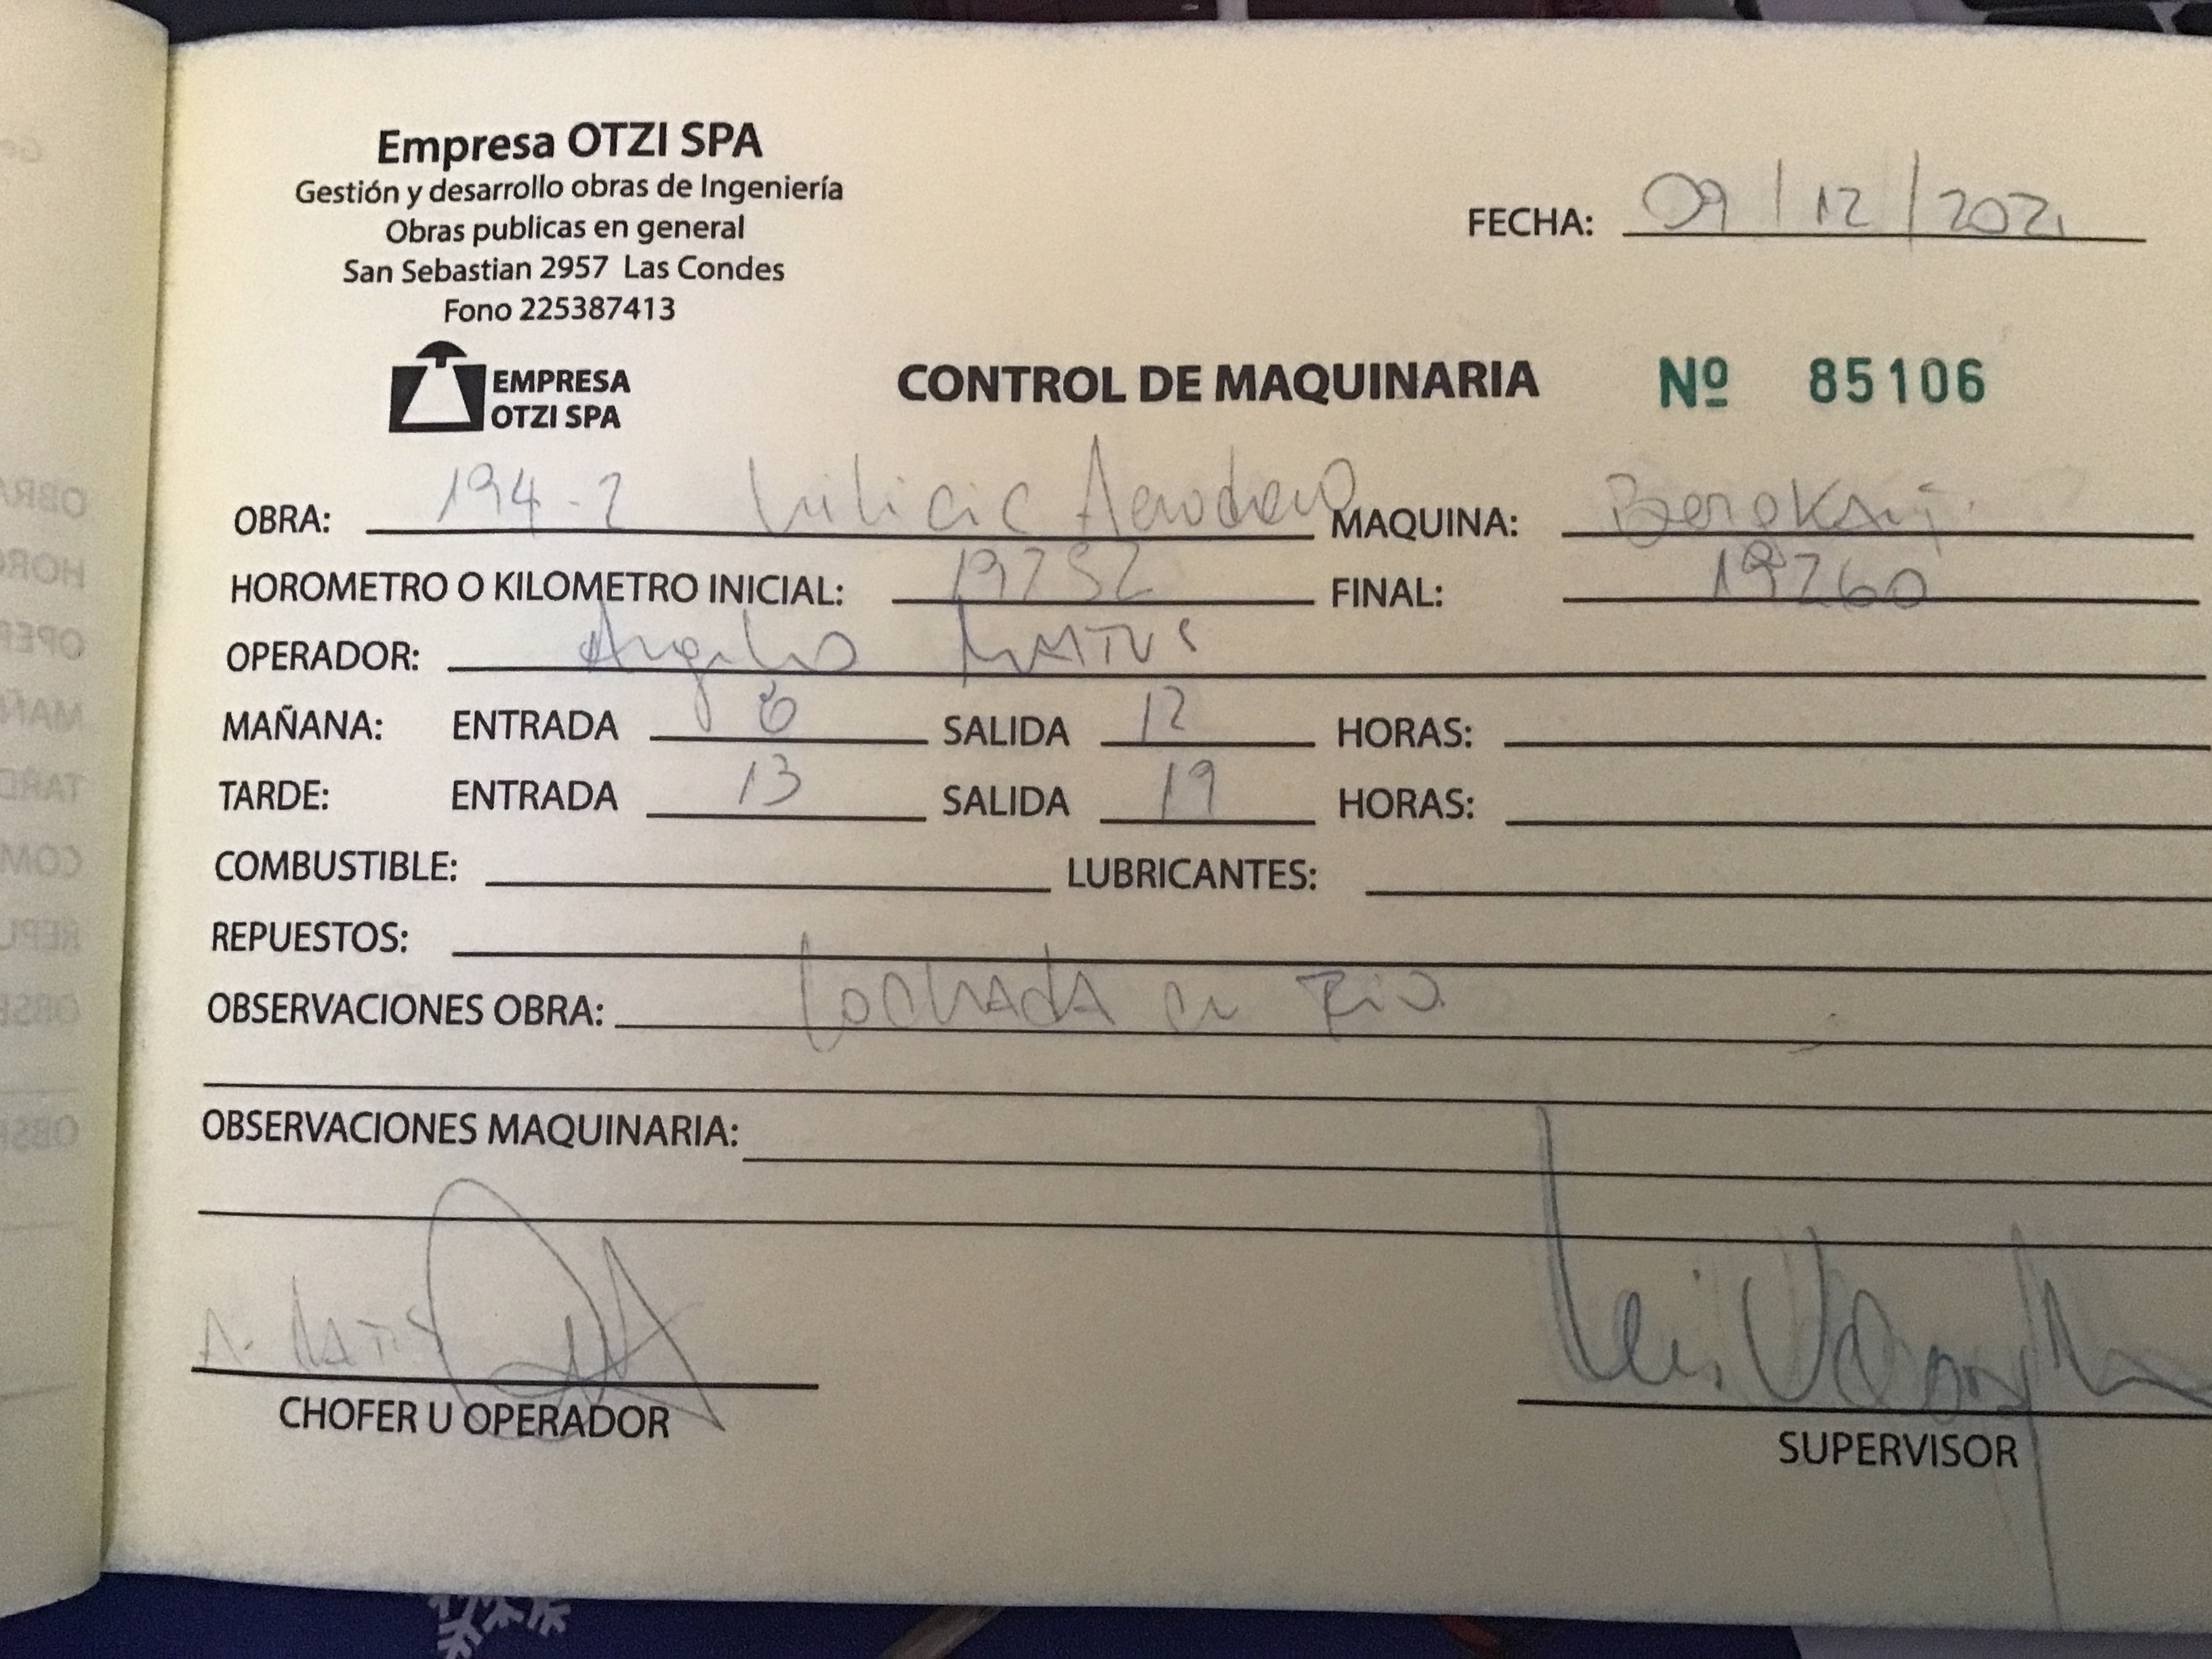 Empresa OTZI SPA
Gestión y desarrollo obras de Ingeniería
Obras publicas en general
San Sebastian 2957 Las Condes
Fono 225387413
FECHA: 09/12/2021
EMPRESA
OTZI SPA
CONTROL DE MAQUINARIA Nº 85106
OBRA: 194-2 MAQUINA:
HOROMETRO O KILOMETRO INICIAL: 19252 FINAL: 19260
OPERADOR: Angelo MATUS
MAÑANA: ENTRADA SALIDA 12 HORAS:
TARDE: ENTRADA 13 SALIDA 19 HORAS:
COMBUSTIBLE: LUBRICANTES:
REPUESTOS:
OBSERVACIONES OBRA: en Rio
OBSERVACIONES MAQUINARIA:
A. MATUS
CHOFER U OPERADOR
SUPERVISOR